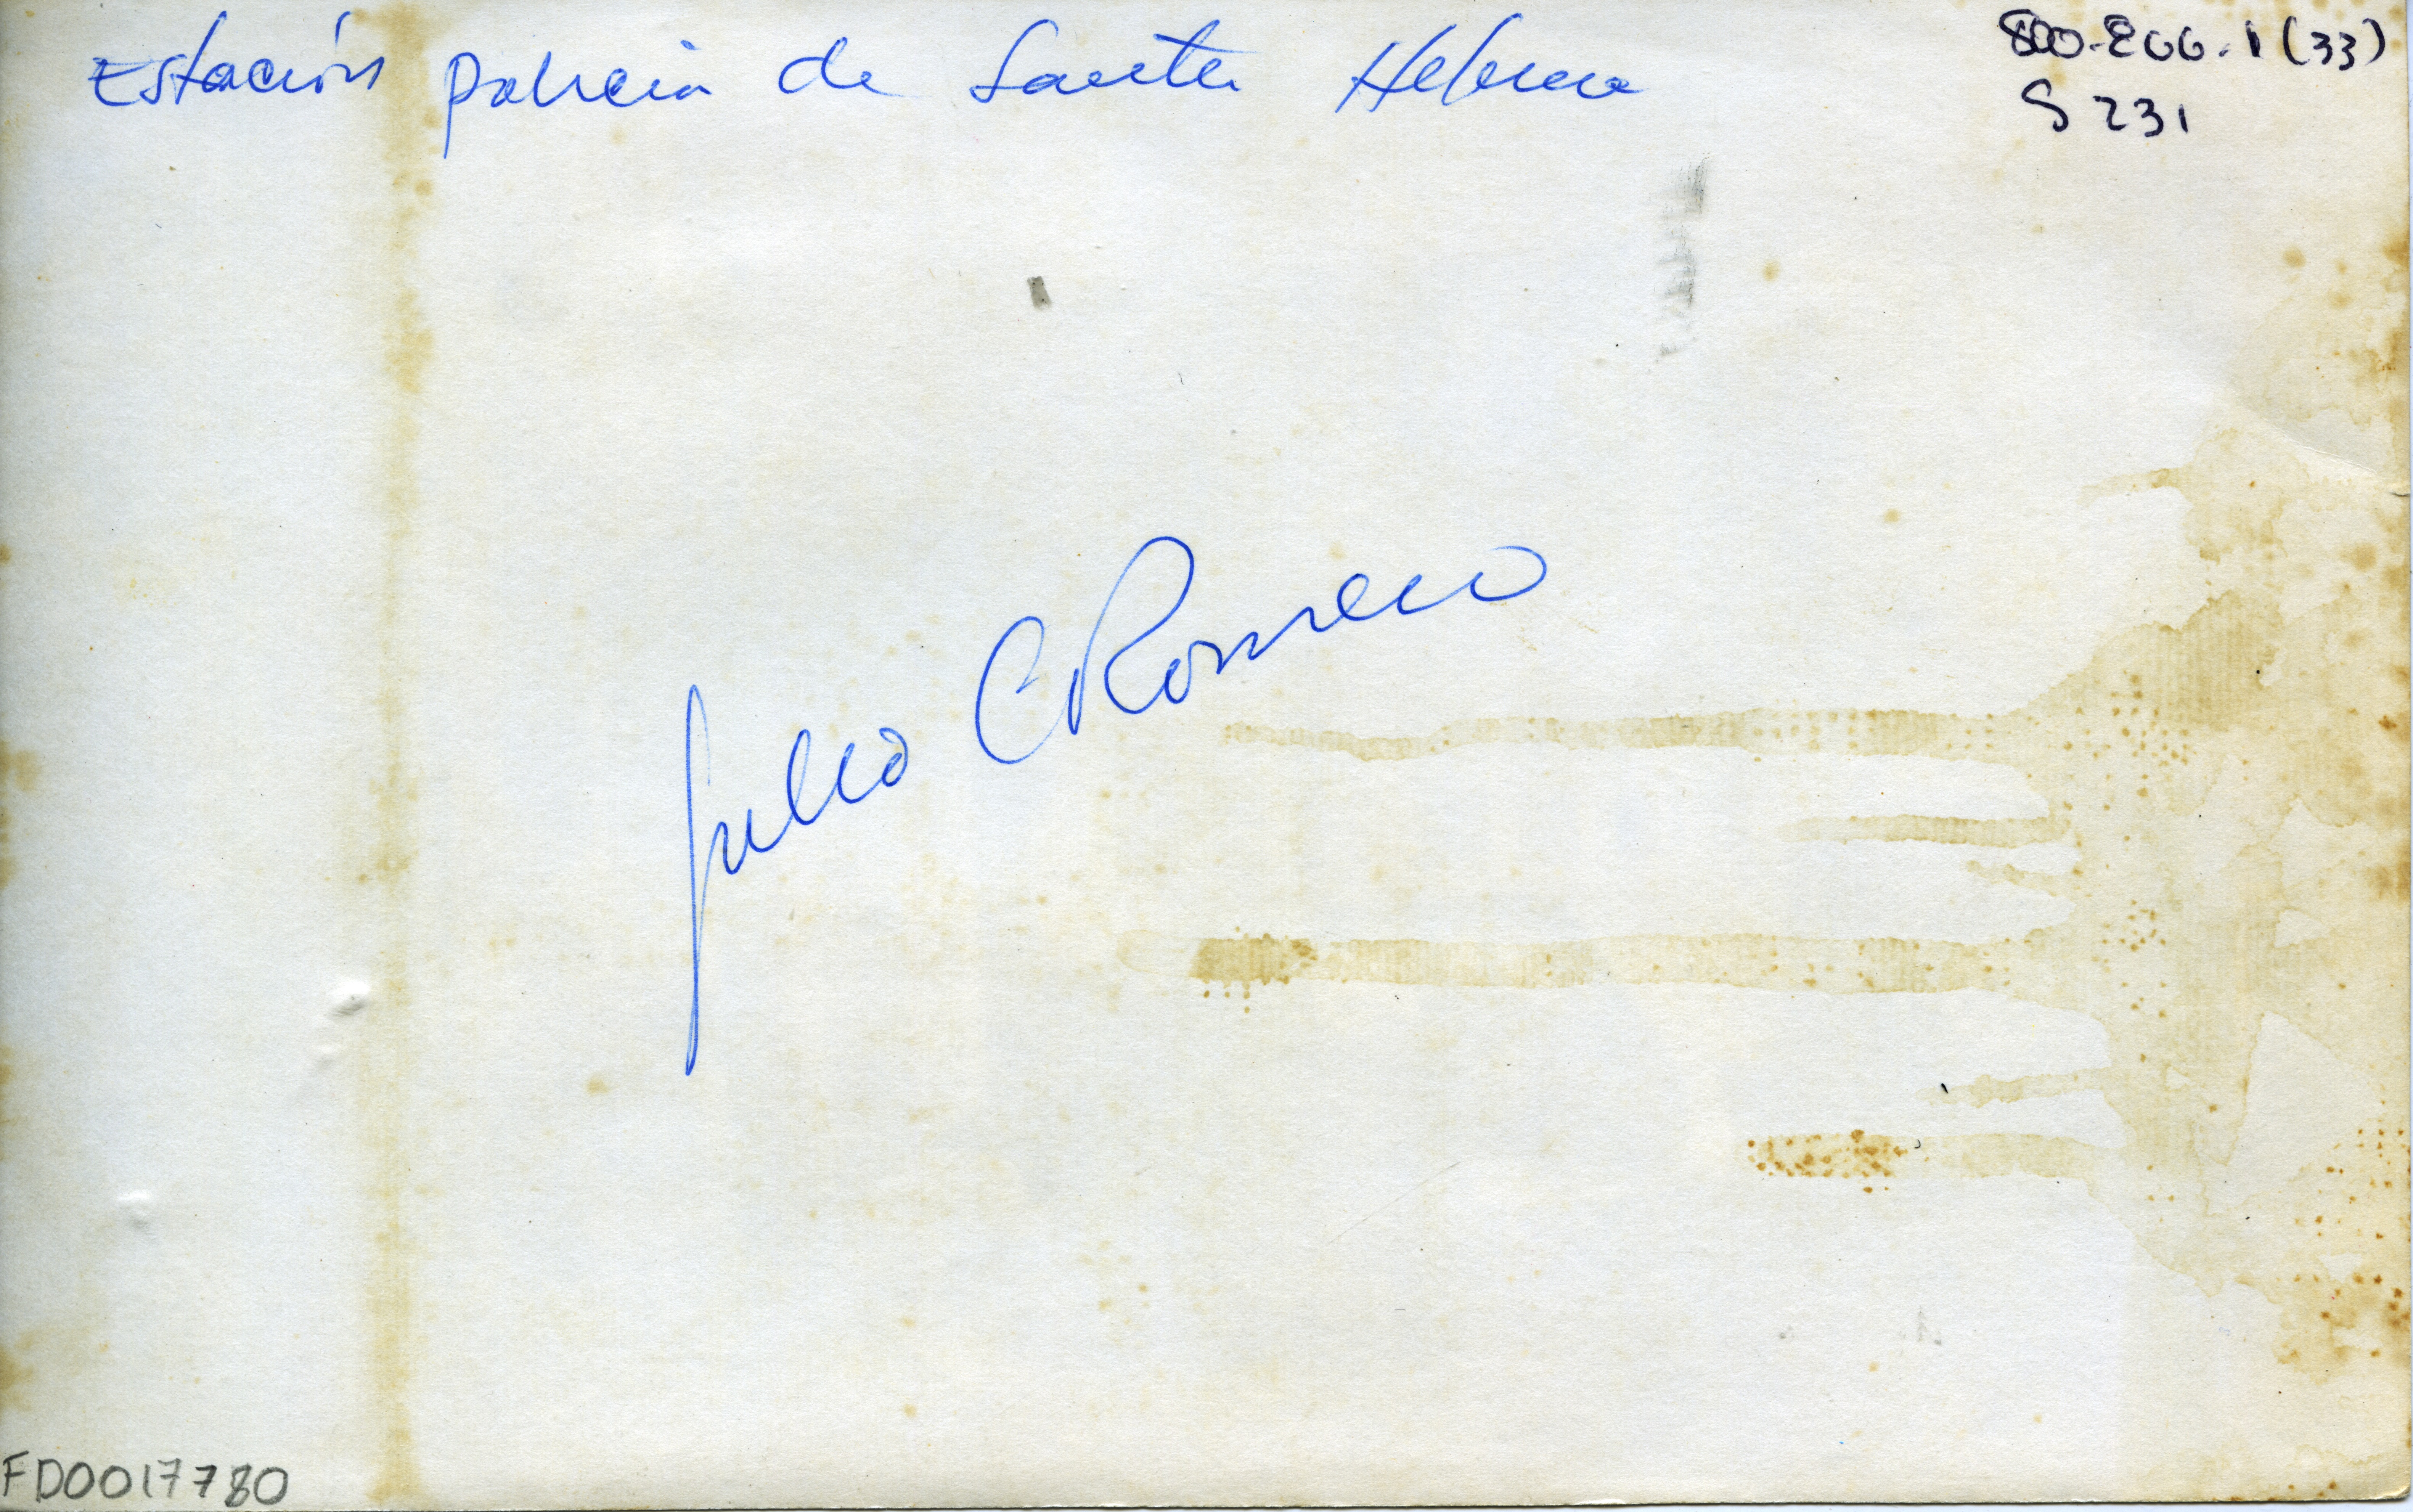 Estación policia de Santa Helena
800-206.1 (33)
S 231
Julio C Romero
FD0017780